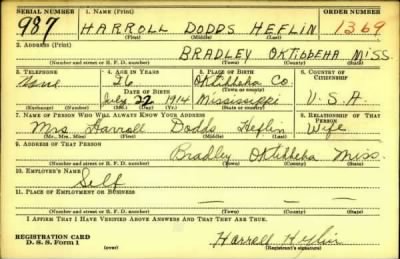 SERIAL NUMBER 1. NAME (Print) ORDER NUMBER
987 HARROLL DODDS HEFLIN 1369
(First) (Middle) (Last)
2. ADDRESS (Print)
BRADLEY OKTIBBEHA MISS.
(Number and street or R. F. D. number) (Town) (County) (State)
3. TELEPHONE 4. AGE IN YEARS 5. PLACE OF BIRTH 6. COUNTRY OF CITIZENSHIP
None 26 Oktibbeha Co.
DATE OF BIRTH (Town) (County)
July 22 1914 Mississippi U. S. A.
(Exchange) (Number) (Mo.) (Day) (Yr.) (State) (Country)
7. NAME OF PERSON WHO WILL ALWAYS KNOW YOUR ADDRESS 8. RELATIONSHIP OF THAT PERSON
Mrs. Harroll Dodds Heflin Wife
(Mr., Mrs., Miss) (First) (Middle) (Last)
9. ADDRESS OF THAT PERSON
Bradley Oktibbeha Miss.
(Number and street or R. F. D. number) (Town) (County) (State)
10. EMPLOYER'S NAME
Self
11. PLACE OF EMPLOYMENT OR BUSINESS
(Number and street or R. F. D. number) (Town) (County) (State)
I AFFIRM THAT I HAVE VERIFIED ABOVE ANSWERS AND THAT THEY ARE TRUE.
REGISTRATION CARD
D. S. S. Form 1 (over) Harroll Heflin
(Registrant's signature)